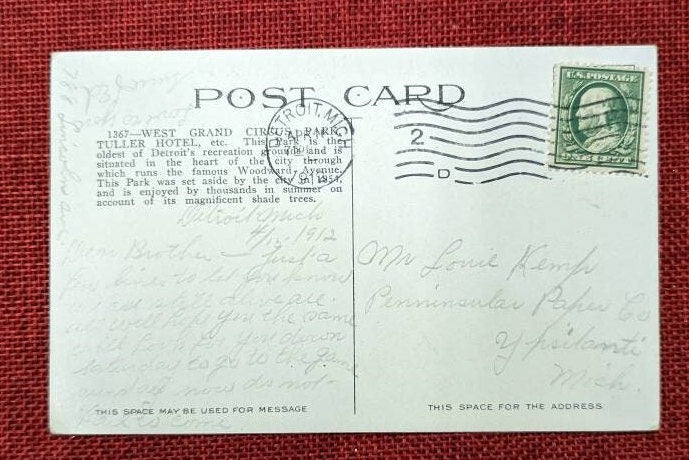 POST CARD
1367—WEST GRAND CIRCUS PARK,
TULLER HOTEL, etc. This Park is the
oldest of Detroit's recreation grounds and is
situated in the heart of the city through
which runs the famous Woodward Avenue.
This Park was set aside by the city in 1854,
and is enjoyed by thousands in summer on
account of its magnificent shade trees.
DETROIT, MICH.
APR
1912
2
D
U.S. POSTAGE
Detroit Mich
4/12-1912
Dear Brother — Just a
few lines to let you know
we are still alive are
all well hope you the same
will look for you down
Saturday to go to the game
now do not
to come
THIS SPACE MAY BE USED FOR MESSAGE
Mr Louie Kemp
Penninsular Paper Co
Ypsilanti
Mich.
THIS SPACE FOR THE ADDRESS